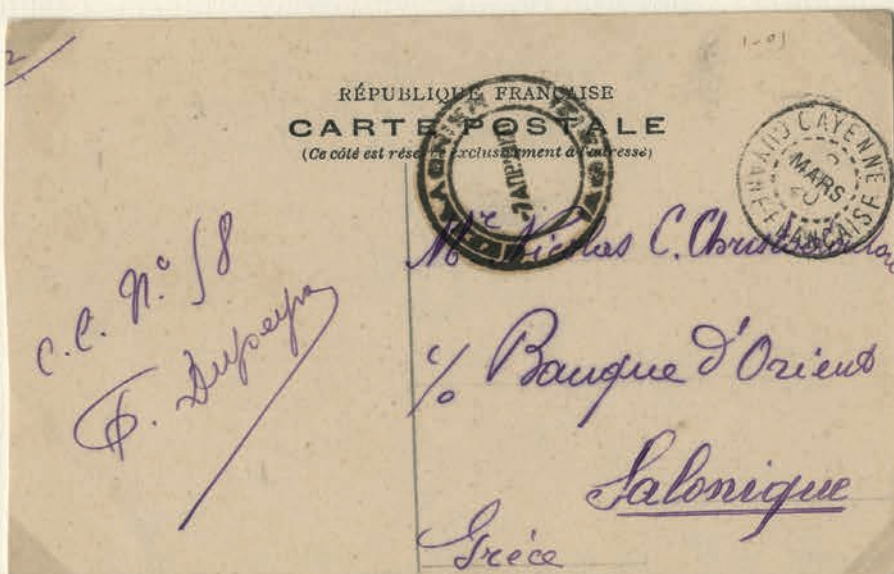 RÉPUBLIQUE FRANÇAISE
CARTE POSTALE
(Ce côté est réservé exclusivement à l'adresse)
CAYENNE
MARS
GUYANE FRANÇAISE
C.C. N.° 58
Mr Nicolas C.
% Banque d'Orient
Salonique
Grèce